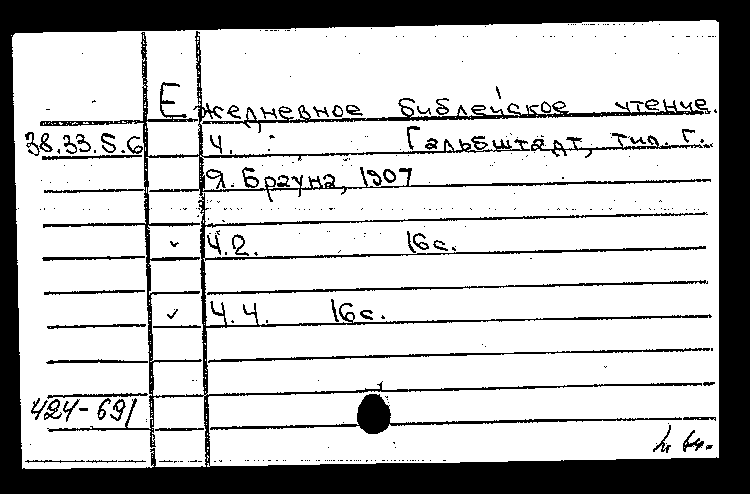 Ежедневное библейское чтение.
38.33.5.6 Ч. : Гальбштадт, тип. Г.
Я. Брауна, 1907
Ч.2. 16с.
Ч.4. 16с.
424-691